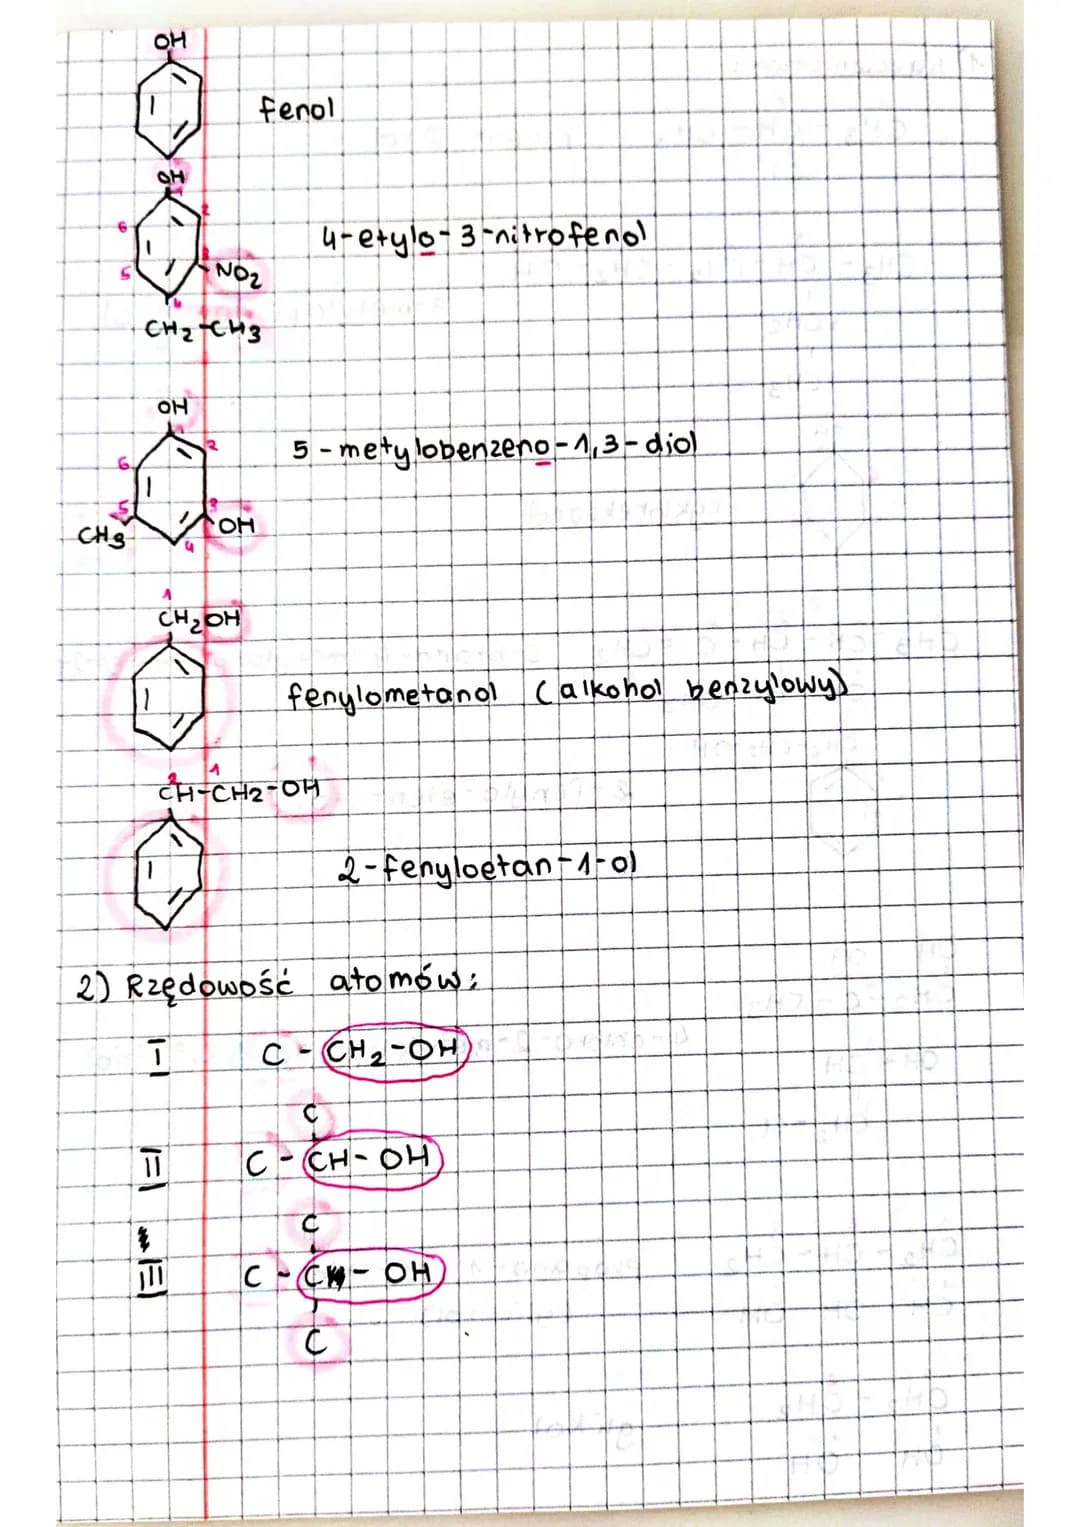 OH
fenol
OH
2
6
4-etylo-3-nitrofenol
5
NO2
4
CH2-CH3
OH
1
2
5-metylobenzeno-1,3-diol
6
5
3
OH
CH3
4
1
CH2OH
fenylometanol (alkohol benzylowy)
2 1
CH-CH2-OH
2-fenyloetan-1-ol
2) Rzędowość atomów:
I C - CH2-OH
C
II C - CH - OH
C
III C - C - OH
C